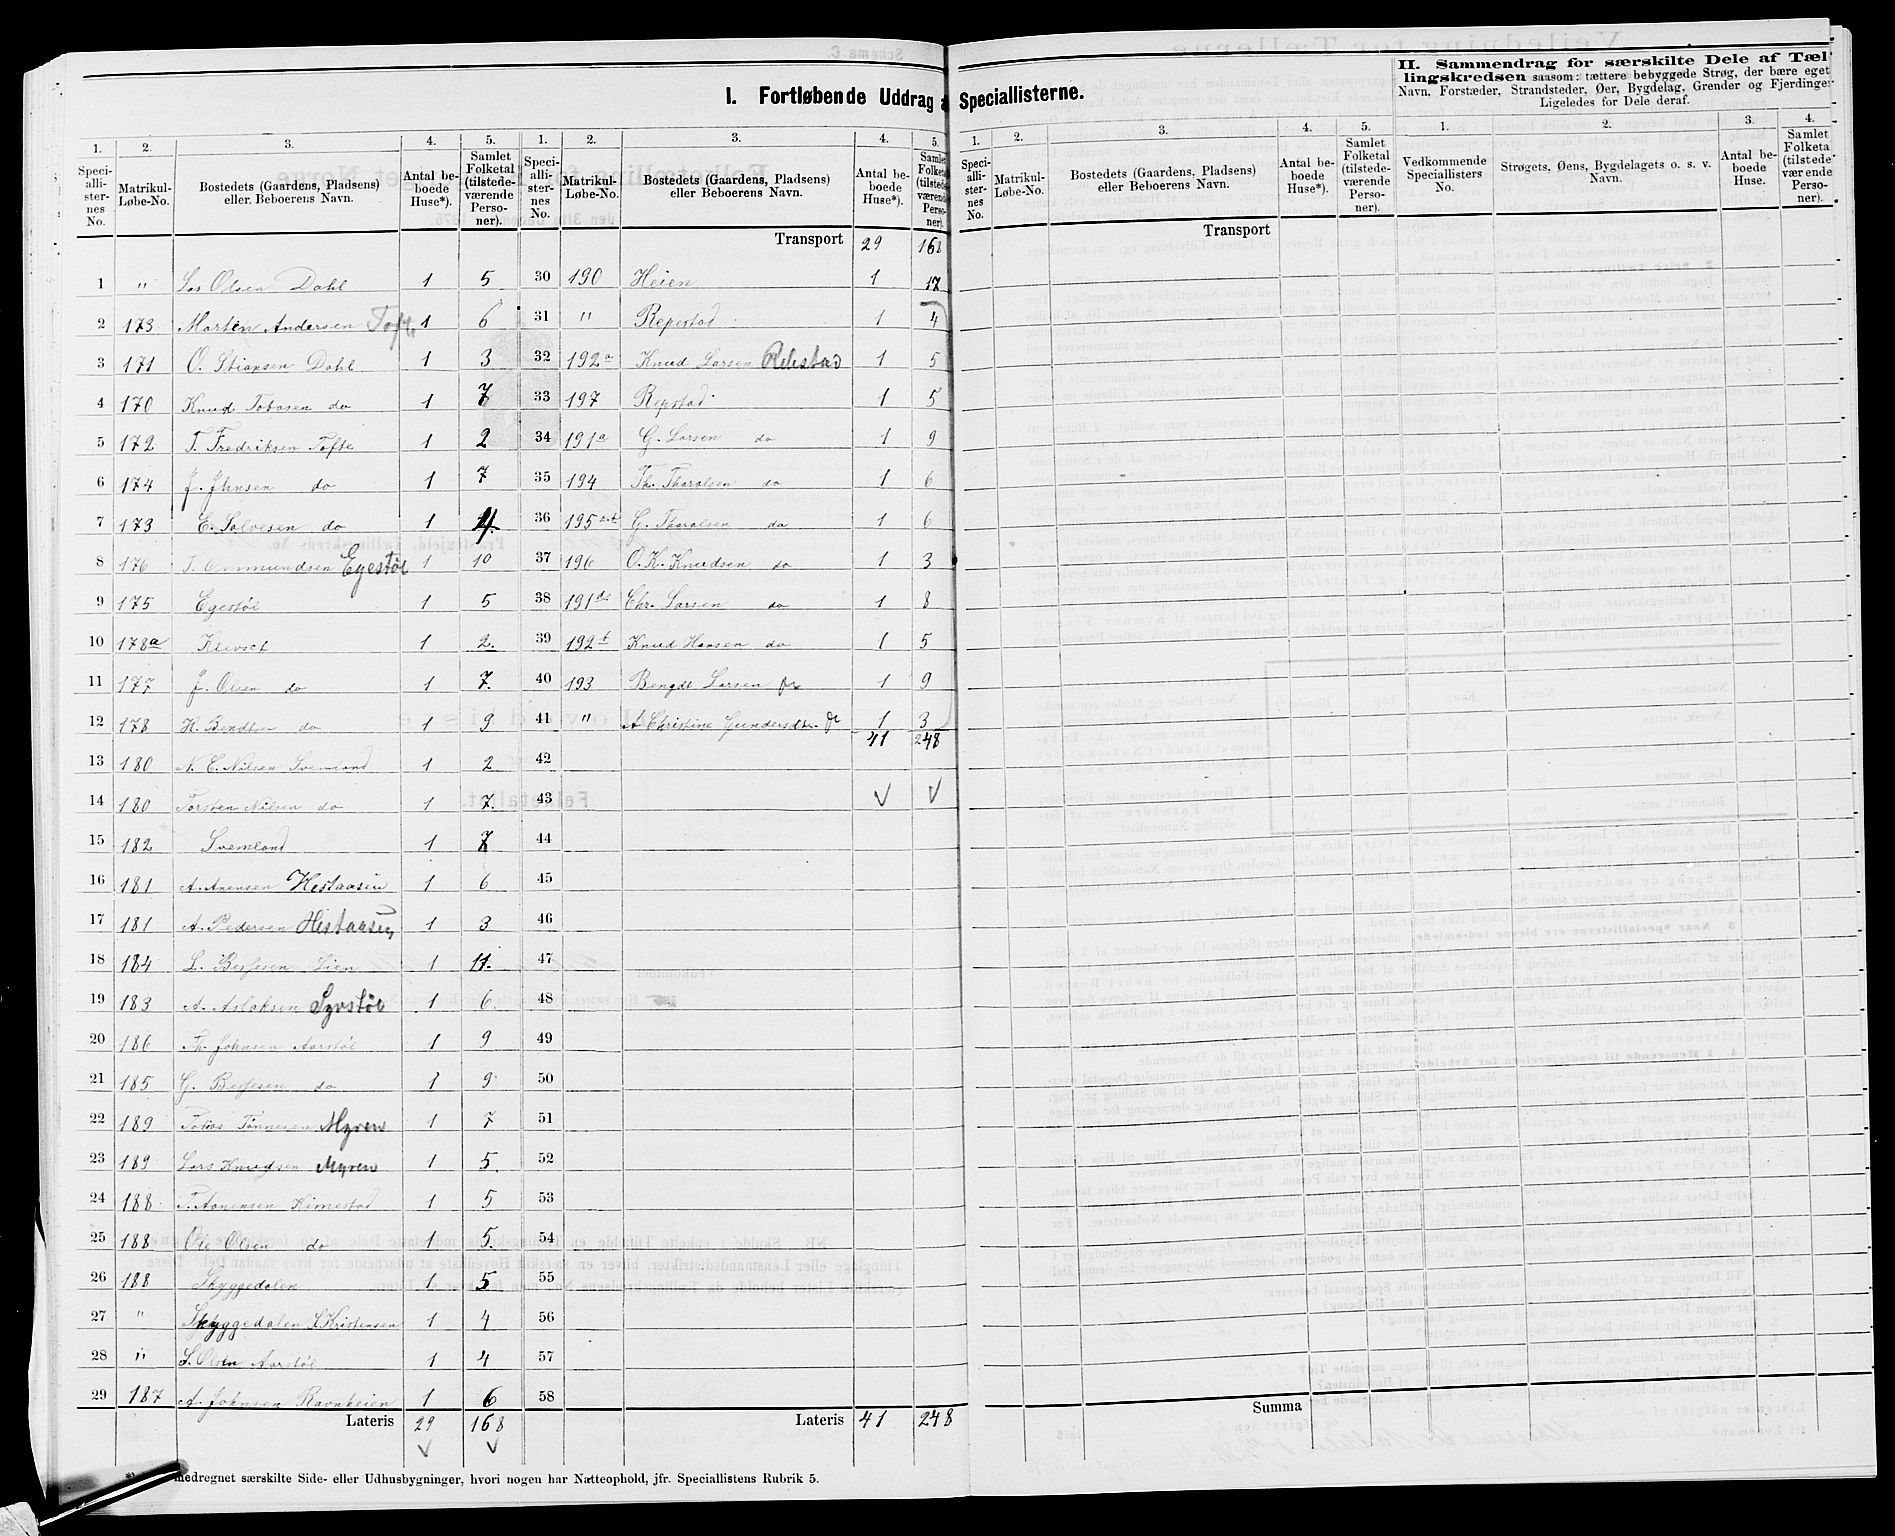 I. Fortløbende Uddrag a Speciallisterne.
II. Sammendrag for særskilte Dele af Tæl-
lingskredsen saasom: tættere bebyggede Strøg, der bære eget
Navn, Forstæder, Strandsteder, Øer, Bygdelag, Grender og Fjerdinger
Ligeledes for Dele deraf.
1. 2. 3. 4. 5. 1. 2. 3. 4. 5.
Speci-alli-ster-nes No. Matrikul-Løbe-No. Bostedets (Gaardens, Pladsens) eller Beboerens Navn. Antal be-boede Huse*). Samlet Folketal (tilstede-værende Perso-ner). Speci-alli-ster-nes No. Matrikul-Løbe-No. Bostedets (Gaardens, Pladsens) eller Beboerens Navn. Antal be-boede Huse*). Samlet Folketal (tilstede-værende Perso-ner).
Transport 29 168
1 " Lars Olsen Dahl 1 5 30 190 Heien 1 17
2 173 Morten Andersen Tofte 1 6 31 " Repestad 1 4
3 171 O. Stiansen Dahl 1 3 32 192a Knud Larsen Rebstad 1 5
4 170 Knud Tobasen do 1 7 33 197 Repstad 1 5
5 172 T. Fredriksen Tofte 1 2 34 191a G. Larsen do 1 9
6 174 J. Jhnsen do 1 7 35 194 Th. Tharalsen do 1 6
7 173 E. Salvesen do 1 4 36 195 G. Tharalsen do 1 6
8 176 Egestøl 1 10 37 196 O. K. Knudsen do 1 3
9 175 Egestøl 1 5 38 191 Chr. Larsen do 1 8
10 178a 1 2 39 192b Knud Hansen do 1 5
11 177 J. Olsen do 1 7 40 193 Bengdt Larsen do 1 9
12 178 H. Bendtsen do 1 9 41 " A Christine Gundersdtr. do 1 3
41 248
13 180 N. E. Nilsen Svemland 1 2 42
14 180 Torsten Nilsen do 1 7 43
15 182 Svemland 1 7 44
16 181 A. Anensen Hestaasen 1 6 45
17 181 A. Pedersen Hestaasen 1 3 46
18 184 L. Berfesen Lien 1 11 47
19 183 A. Aslaksen Syrstøl 1 6 48
20 186 Th. Johnsen Aarstøl 1 9 49
21 185 G. Berfesen do 1 9 50
22 189 Tobias Tønnesen Myren 1 7 51
23 189 Lars Knudsen Myren 1 5 52
24 188 T. Aanensen Kimestad 1 5 53
25 188 Ole Olsen do 1 5 54
26 188 Skyggedalen 1 5 55
27 " Skyggedalen L Kristensen 1 4 56
28 " L. Olsen Aarstøl 1 4 57
29 187 A. Johnsen Ravnheien 1 6 58
Lateris 29 168 Lateris 41 248
medregnet særskilte Side- eller Udhusbygninger, hvori nogen har Natteophold, jfr. Speciallistens Rubrik 5.
1. 2. 3. 4. 5. 1. 2. 3. 4.
Speci-alli-ster-nes No. Matrikul-Løbe-No. Bostedets (Gaardens, Pladsens) eller Beboerens Navn. Antal be-boede Huse*). Samlet Folketal (tilstede-værende Perso-ner). Vedkommende Speciallisters No. Strøgets, Øens, Bygdelagets o. s. v. Navn. Antal be-boede Huse. Samlet Folketal (tilstede-værende Perso-ner).
Transport
Summa